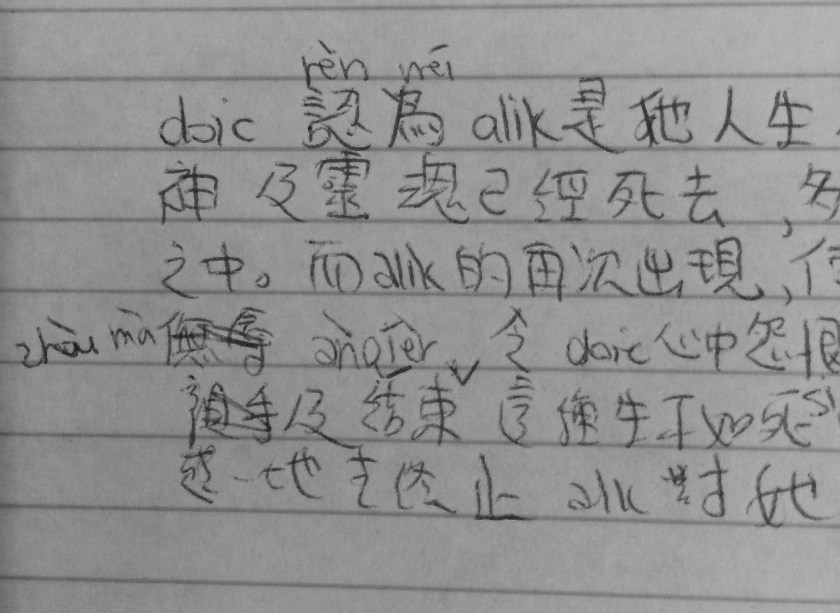 rèn wéi
doic 認為 alik是她人生
神及靈魂已經死去,
之中。而alik的再次出現,
zhòu mà 令 doic心中怨恨
及結束這種生不如死
地去終止 alik 對她